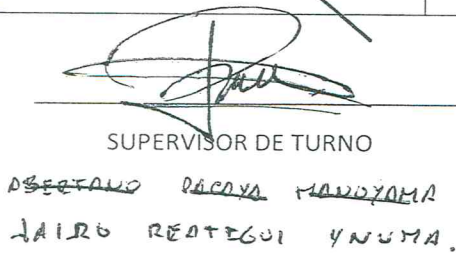 SUPERVISOR DE TURNO
PACAYA MANUYAMA
JAIRO REATEGUI YNUMA.